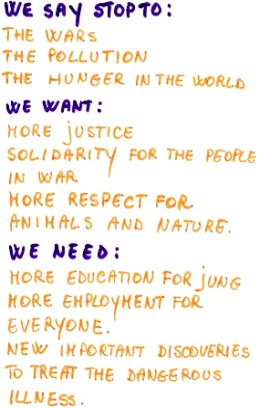 WE SAY STOP TO:
THE WARS
THE POLLUTION
THE HUNGER IN THE WORLD
WE WANT:
MORE JUSTICE
SOLIDARITY FOR THE PEOPLE
IN WAR
MORE RESPECT FOR
ANIMALS AND NATURE.
WE NEED:
MORE EDUCATION FOR JUNG
MORE EMPLOYMENT FOR
EVERYONE.
NEW IMPORTANT DISCOVERIES
TO TREAT THE DANGEROUS
ILLNESS.